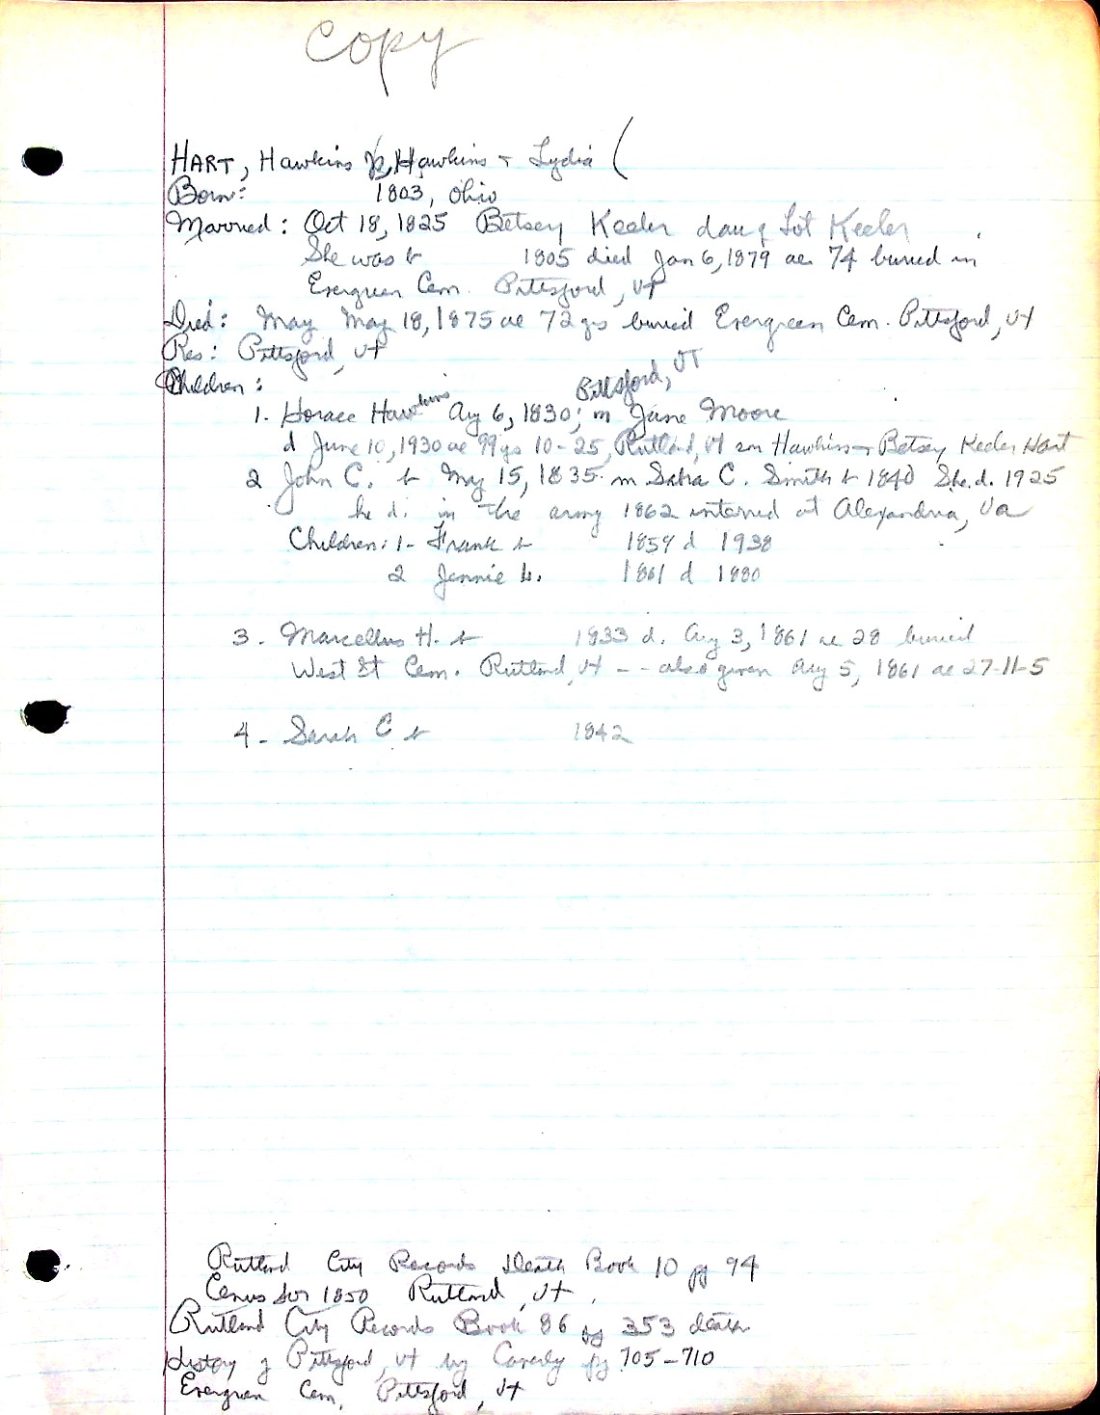 Copy
HART, Hawkins Jr, Hawkins + Lydia (
Born: 1803, Ohio
Married: Oct 18, 1825 Betsey Keeler dau of Lot Keeler
She was b 1805 died Jan 6, 1879 ae 74 buried in
Evergreen Cem. Pittsford, VT
Died: May May 18, 1875 ae 72 yrs buried Evergreen Cem. Pittsford, Vt
Res: Pittsford, Vt
Children:
Pittsford, VT
1. Horace Hawkins Aug 6, 1830; m Jane Moore
d June 10, 1930 ae 99 yrs 10-25, Rutland, Vt son Hawkins + Betsey Keeler Hart
2 John C. b May 15, 1835 m Sara C. Smith b 1840 She d. 1925
he d. in the army 1862 interred at Alexandria, Va
Children: 1- Frank b 1859 d 1938
2 Jennie L. 1861 d 1880
3. Marcellus H. b 1833 d. Aug 3, 1861 ae 28 buried
West St Cem. Rutland, Vt -- also given Aug 5, 1861 ae 27-11-5
4- Sarah C b 1842
Rutland City Records Death Book 10 pg 94
Cenus for 1850 Rutland, Vt.
Rutland City Records Book 86 pg 353 death
History of Pittsford, Vt by Caverly pg 705-710
Evergreen Cem, Pittsford, Vt